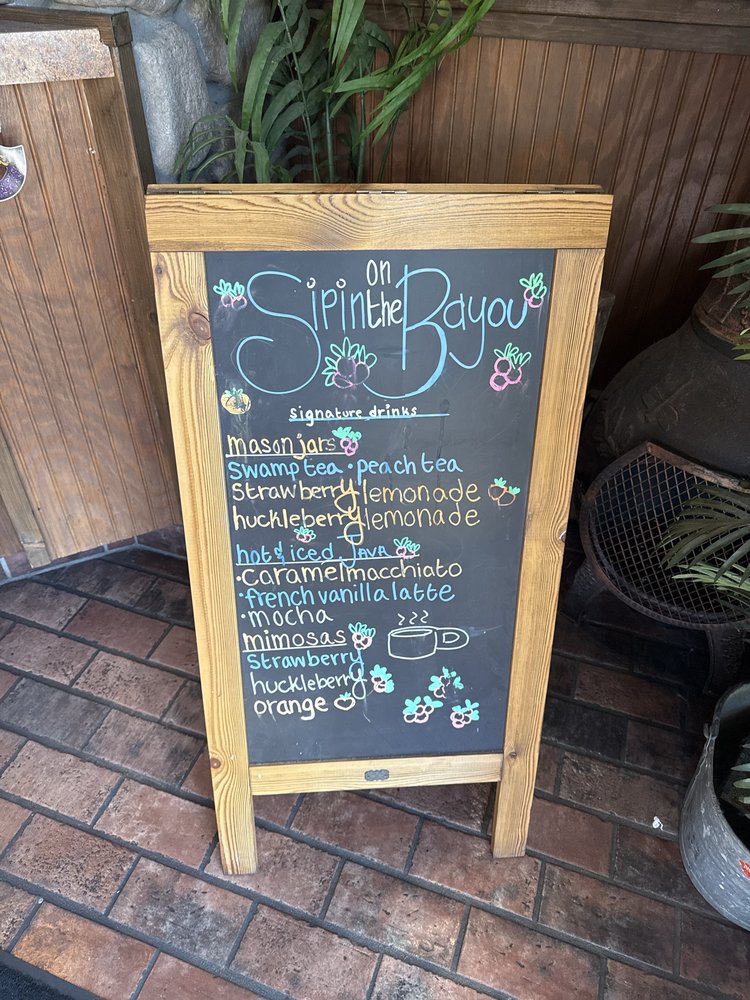 Sipin on the Bayou
signature drinks
mason jars
swamp tea • peach tea
strawberry lemonade
huckleberry lemonade
hot & iced JAVA
• caramel macchiato
• french vanilla latte
• mocha
mimosas
strawberry
huckleberry
orange